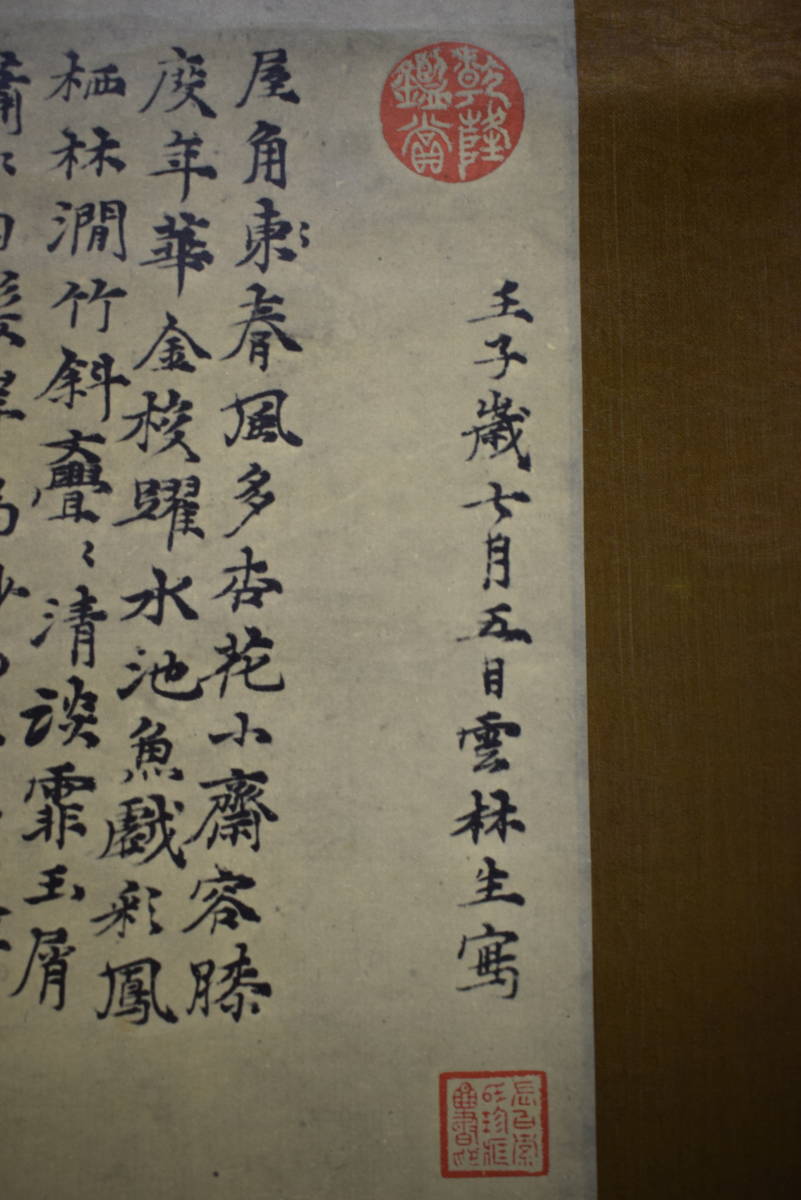 乾隆
鑑賞
壬子歲七月五日雲林生寫
長白索
氏珍藏
圖書印
屋角東春風多杏花小齋容膝
度年華金梭躍水池魚戲彩鳳
栖林澗竹斜亹〻清談霏玉屑